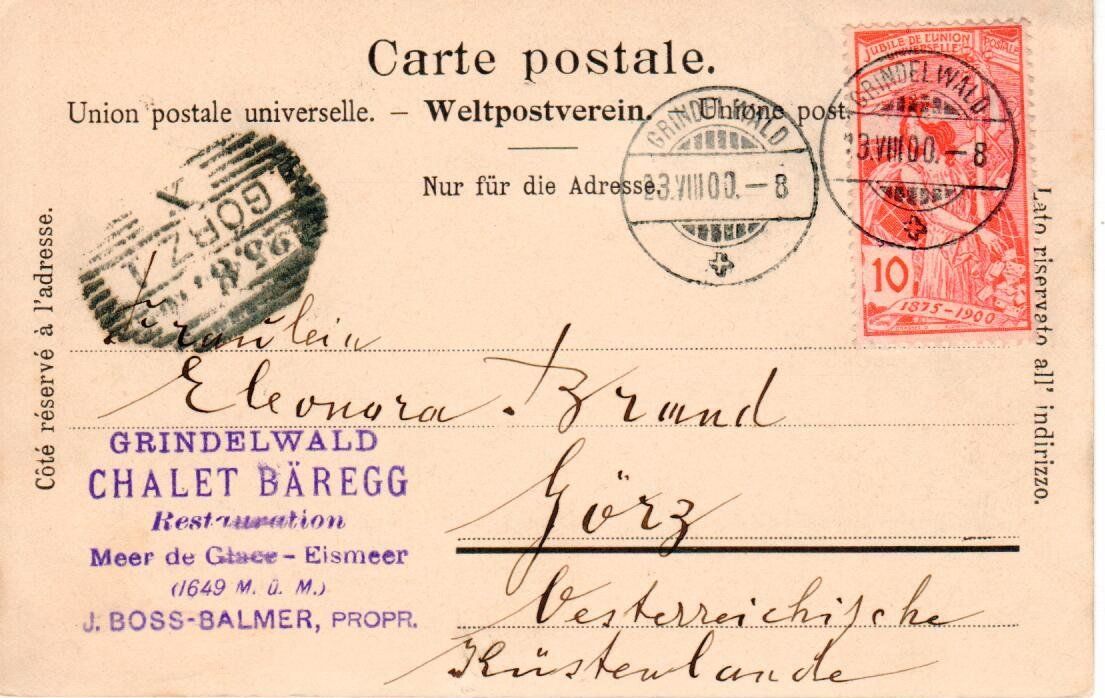 Carte postale.
Union postale universelle. – Weltpostverein. – Unione post.
Nur für die Adresse.
Côté réservé à l'adresse.
Lato riservato all' indirizzo.
JUBILÉ DE L'UNION
UNIVERSELLE POSTALE
10
1875-1900
GRINDELWALD
23.VIII 00.–8
GRINDELWALD
23.VIII 00.–8
GÖRZ 1
25.8.
X
Fräulein
Eleonora Brand
Görz
Oesterreichische
Küstenlande
GRINDELWALD
CHALET BÄREGG
Restauration
Meer de Glace – Eismeer
(1649 M. ü. M.)
J. BOSS-BALMER, PROPR.